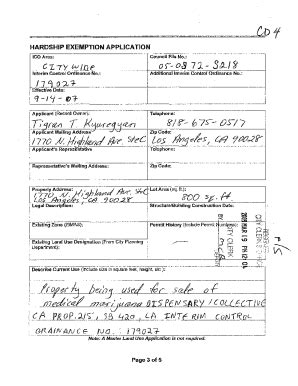 CD 4
HARDSHIP EXEMPTION APPLICATION
ICO Area:
CITY WIDE
Council File No.:
05-0872-S218
Interim Control Ordinance No.:
179027
Additional Interim Control Ordinance No.:
Effective Date:
9-14-07
Applicant (Record Owner):
Tigran T Kyuregyan
Telephone:
818-675-0517
Applicant Mailing Address
1770 N. Highland Ave. SteC
Zip Code:
Los Angeles, CA 90028
Applicant's Representative
Telephone:
Representative's Mailing Address
Zip Code:
Property Address:
1770 N. Highland Ave. SteC
Los Angeles, CA 90028
Lot Area (sq. ft.):
800 sq. ft
Legal Description:
Structure/Building Construction Date:
Existing Zone (ZIMAS):
Permit History (Include Permit Numbers):
Existing Land Use Designation (From City Planning
Department):
CITY CLERK
BY
2008 MAR 19 PM 12:04
CITY CLERK'S OFFICE
P/S
Describe Current Use (Include size in square feet, height, etc.):
Property being used for sale of
medical marijuana DISPENSARY / COLLECTIVE
CA PROP. 215, SB 420, LA INTERIM CONTROL
ORDINANCE NO.: 179027
Note: A Master Land Use Application is not required.
Page 3 of 5